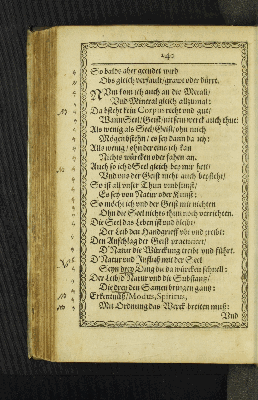 240
So balds aber geendet wird
Obs gleich verfault/ grawt oder dürrt.
NUn kom ich auch an die Metall/
Vnd Mineral gleich allzumal:
Da bsteht kein Corpus recht vnd gut/
Wann Seel/ Geist/ mit seim werck nicht thut:
Als wenig als Seel/ Geist/ ohn mich
Mögen bstehn/ es sey dann da ich:
Als wenig/ ohn der eins ich kan
Nichts würcken oder fahen an.
Auch so ich d'Seel gleich bey mir hett/
Vnd uns der Geist nicht auch beysteht/
So ist all vnser Thun vmbsunst/
Es sey von Natur oder Kunst:
So möcht ich vnd der Geist mit nichten
Ohn die Seel nichts thun noch verrichten.
Die Seel das Leben ist vnd bleibt/
Der Leib den Handgrieff übt vnd treibt:
Den Anschlag der Geist practiciert
D'Natur die Würckung treibt vnd führt.
D'Natur vnd Influß mit der Seel
Seyn drey Ding die da würcken schnell:
Der Leib/ d'Natur vnd die Substantz/
Die drey den Samen bringen gantz:
Erkentnuß/ Modus, Spiritus,
Mit Ordnung das Werck breiten muß:
Vnd